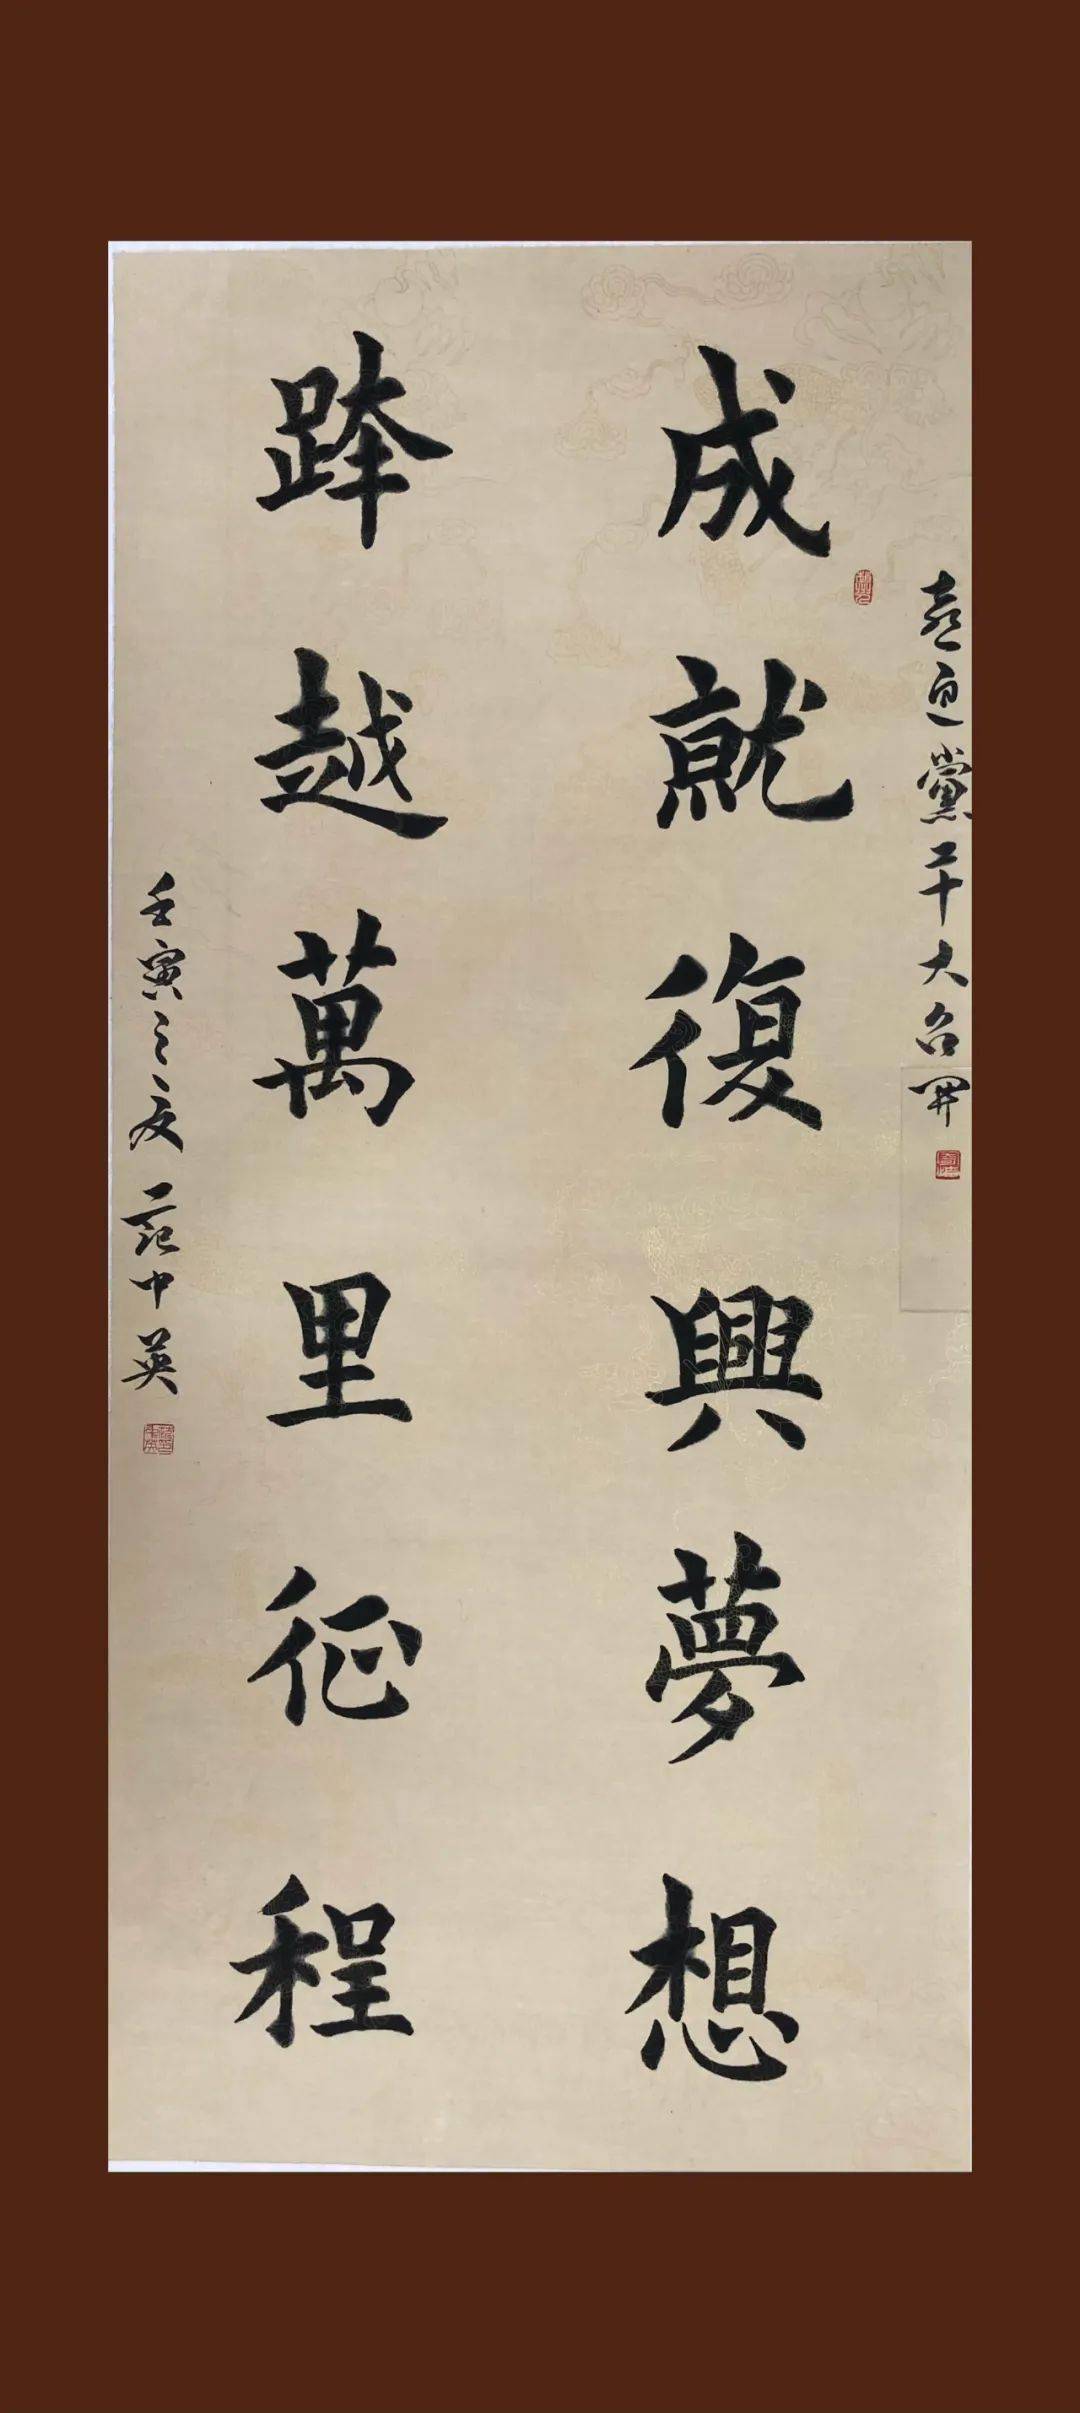 喜迎黨二十大召開
成就復興夢想
跨越萬里征程
壬寅之夏范中英